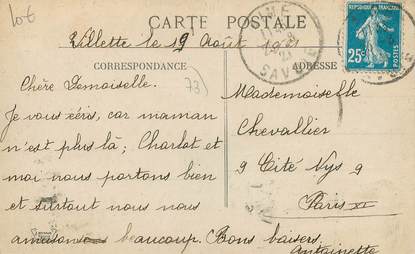 lot
CARTE POSTALE
Villette le 19 Août
CORRESPONDANCE
ADRESSE
RÉPUBLIQUE FRANÇAISE
25c
POSTES
AIME
19-8
21
SAVOIE
73
Chère Demoiselle.
Je vous écris, car maman
n'est plus là; Charlot et
moi nous portons bien
et surtout nous nous
amusons beaucoup. Bons baisers.
Antoinette
Mademoiselle
Chevallier
9 Cité Nys 9
Paris XI